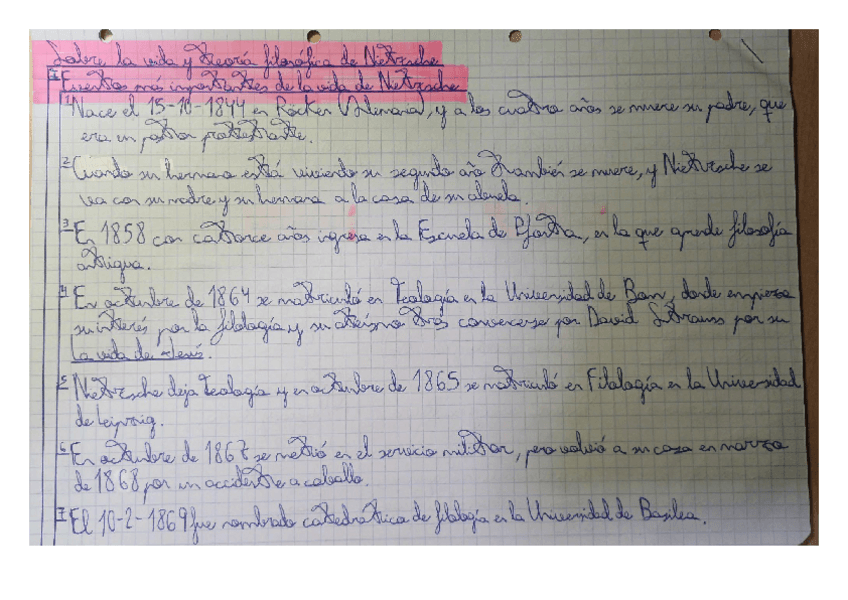 Sobre la vida y teoría filosófica de Nietzsche
1 Eventos más importantes de la vida de Nietzsche
1- Nace el 15-10-1844 en Rocken (Alemania), y a los cuatro años se muere su padre, que
era un pastor protestante.
2- Cuando su hermano está viviendo su segundo año también se muere, y Nietzsche se
va con su madre y su hermana a la casa de su abuela.
3- En 1858 con catorce años ingresa en la Escuela de Pforta, en la que aprende filosofía
antigua.
4- En octubre de 1864 se matriculó en Teología en la Universidad de Bonn, donde empieza
su interés por la filología y su ateísmo tras convencerse por David Strauss por su
La vida de Jesús.
5- Nietzsche deja Teología y en octubre de 1865 se matriculó en Filología en la Universidad
de Leipzig.
6- En octubre de 1867 se metió en el servicio militar, pero volvió a su casa en marzo
de 1868 por un accidente a caballo.
7- El 10-2-1869 fue nombrado catedrático de filología en la Universidad de Basilea.